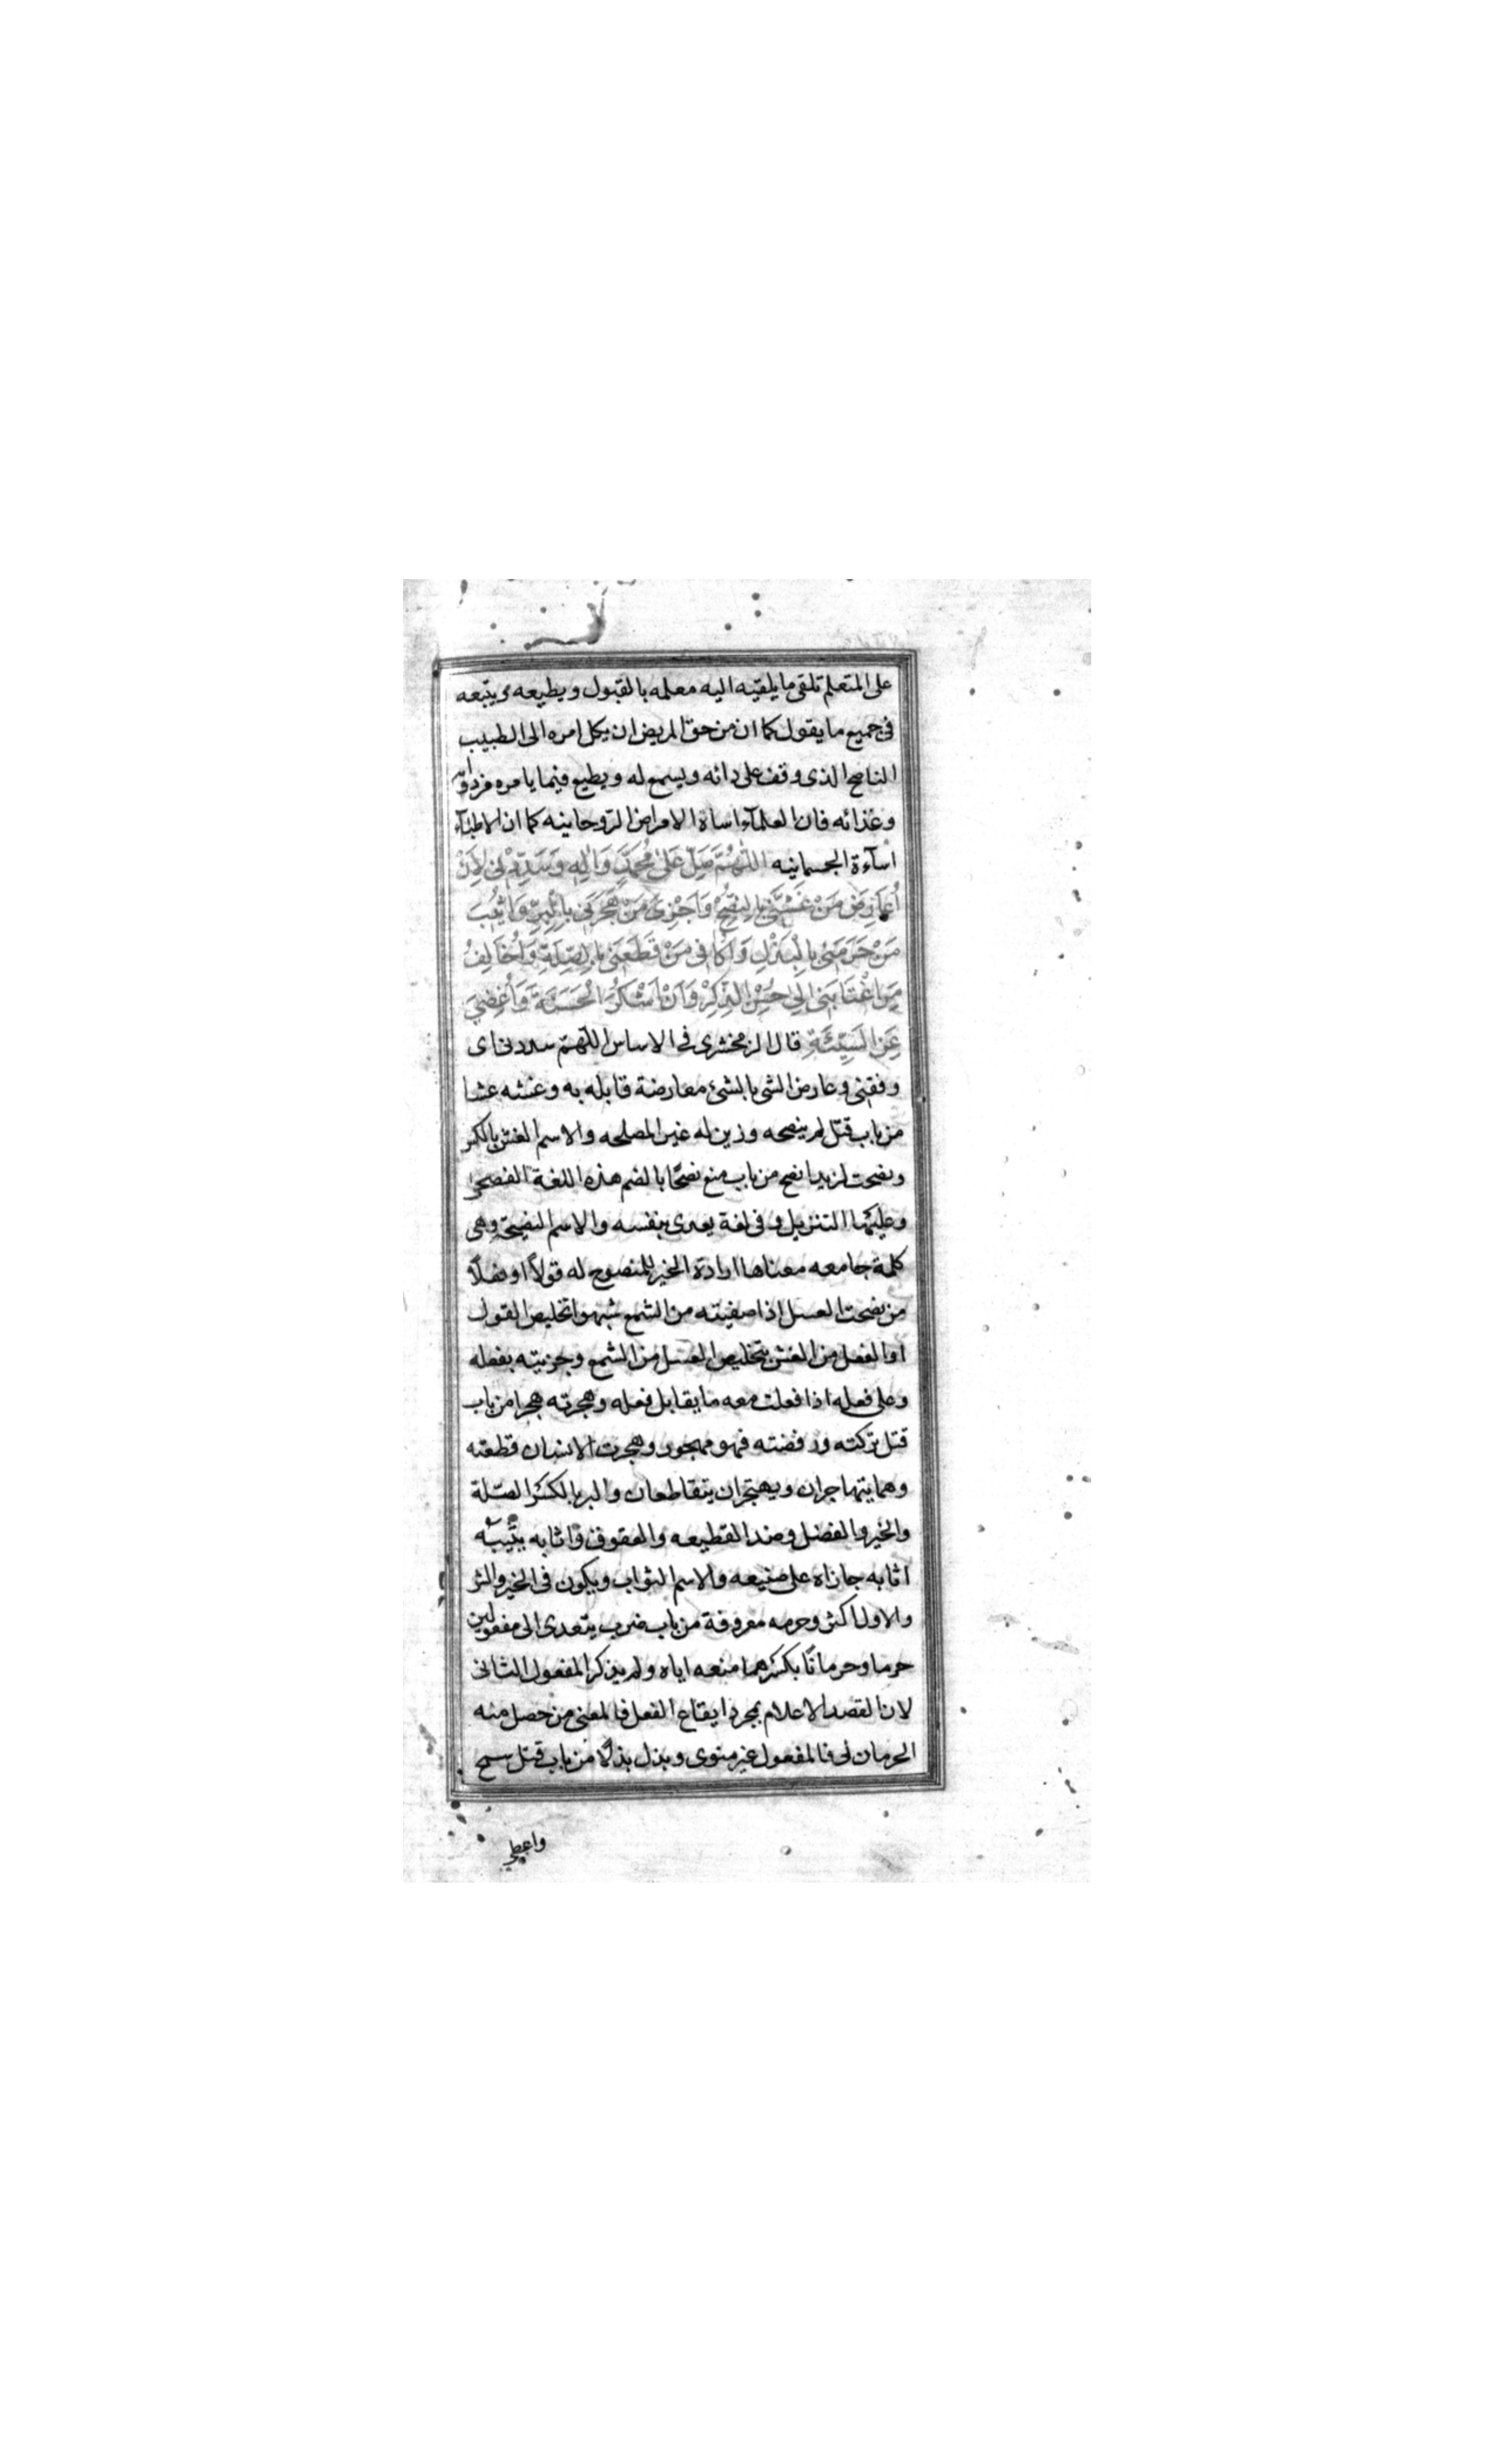 على المتعلم تلقى ما يلقيه اليه معلمه بالقبول ويطيعه ويتبعه
فى جميع ما يقول كما ان من حق المريض ان يكل امره الى الطبيب
الناصح الذى وقف على دائه ويسمع له ويطيع فيما يامره من دوائه
وغذائه فان العلمآء اساة الامراض الروحانيه كما ان الاطبآء
اسآءة الجسمانيه اللّٰهُمَّ صَلِّ عَلىٰ مُحَمَّدٍ وَاٰلِهِ وَسَدِّدْنى لِاَنْ
اُعٰارِضَ مَنْ غَشَّنى بِالنُّصْحِ وَاَجْزِىَ مَنْ هَجَرَنى بِالْبِرِّ وَاُثيبَ
مَنْ حَرَمَنى بِالْبَذْلِ وَاُكافِىَ مَنْ قَطَعَنى بِالصِّلَةِ وَاُخٰالِفَ
مَنِ اغْتٰابَنى اِلىٰ حُسْنِ الذِّكْرِ وَاَنْ اَشْكُرَ الْحَسَنَةَ وَاُغْضِىَ
عَنِ السَّيِّئَةِ قال الزمخشرى فى الاساس اللّٰهمّ سددنى اى
وفقنى وعارض الشى بالشئ معارضة قابله به وغشه غشا
من باب قتل لم ينصحه وزين له غير المصلحه والاسم الغش بالكسر
ونصحت لزيد انصح من باب منع نصحًا بالضم هذه اللغة الفصحى
وعليها التنزيل وفى لغة يعدى بنفسه والاسم النصيحة وهى
كلمة جامعه معناها ارادة الخير للمنصوح له قولاً او فعلاً
من نصحت العسل اذا صفيته من الشمع شبهوا تخليص القول
او الفعل من الغش بتخليص العسل من الشمع وجزيته بفعله
وعلى فعله اذا فعلت معه ما يقابل فعله وهجرته هجرا من باب
قتل تركته ورفضته فهو مهجور وهجرت الانسان قطعته
وهما يتهاجران ويهتجران يتقاطعان والبر بالكسر الصّلة
والخير والفضل وضد القطيعه والعقوق واثابه يثيبه
اثابه جازاه على صنيعه والاسم الثواب ويكون فى الخير والشر
والاول اكثر وحرمه معروفة من باب ضرب يتعدى الى مفعولين
حرما وحرمانًا بكسرهما منعه اياه ولم يذكر المفعول الثانى
لان القصد الاعلام بمجرد ايقاع الفعل فالمعنى من حصل منه
الحرمان لى فالمفعول غير منوى وبذل بذلاً من باب قتل سمح
واعطى